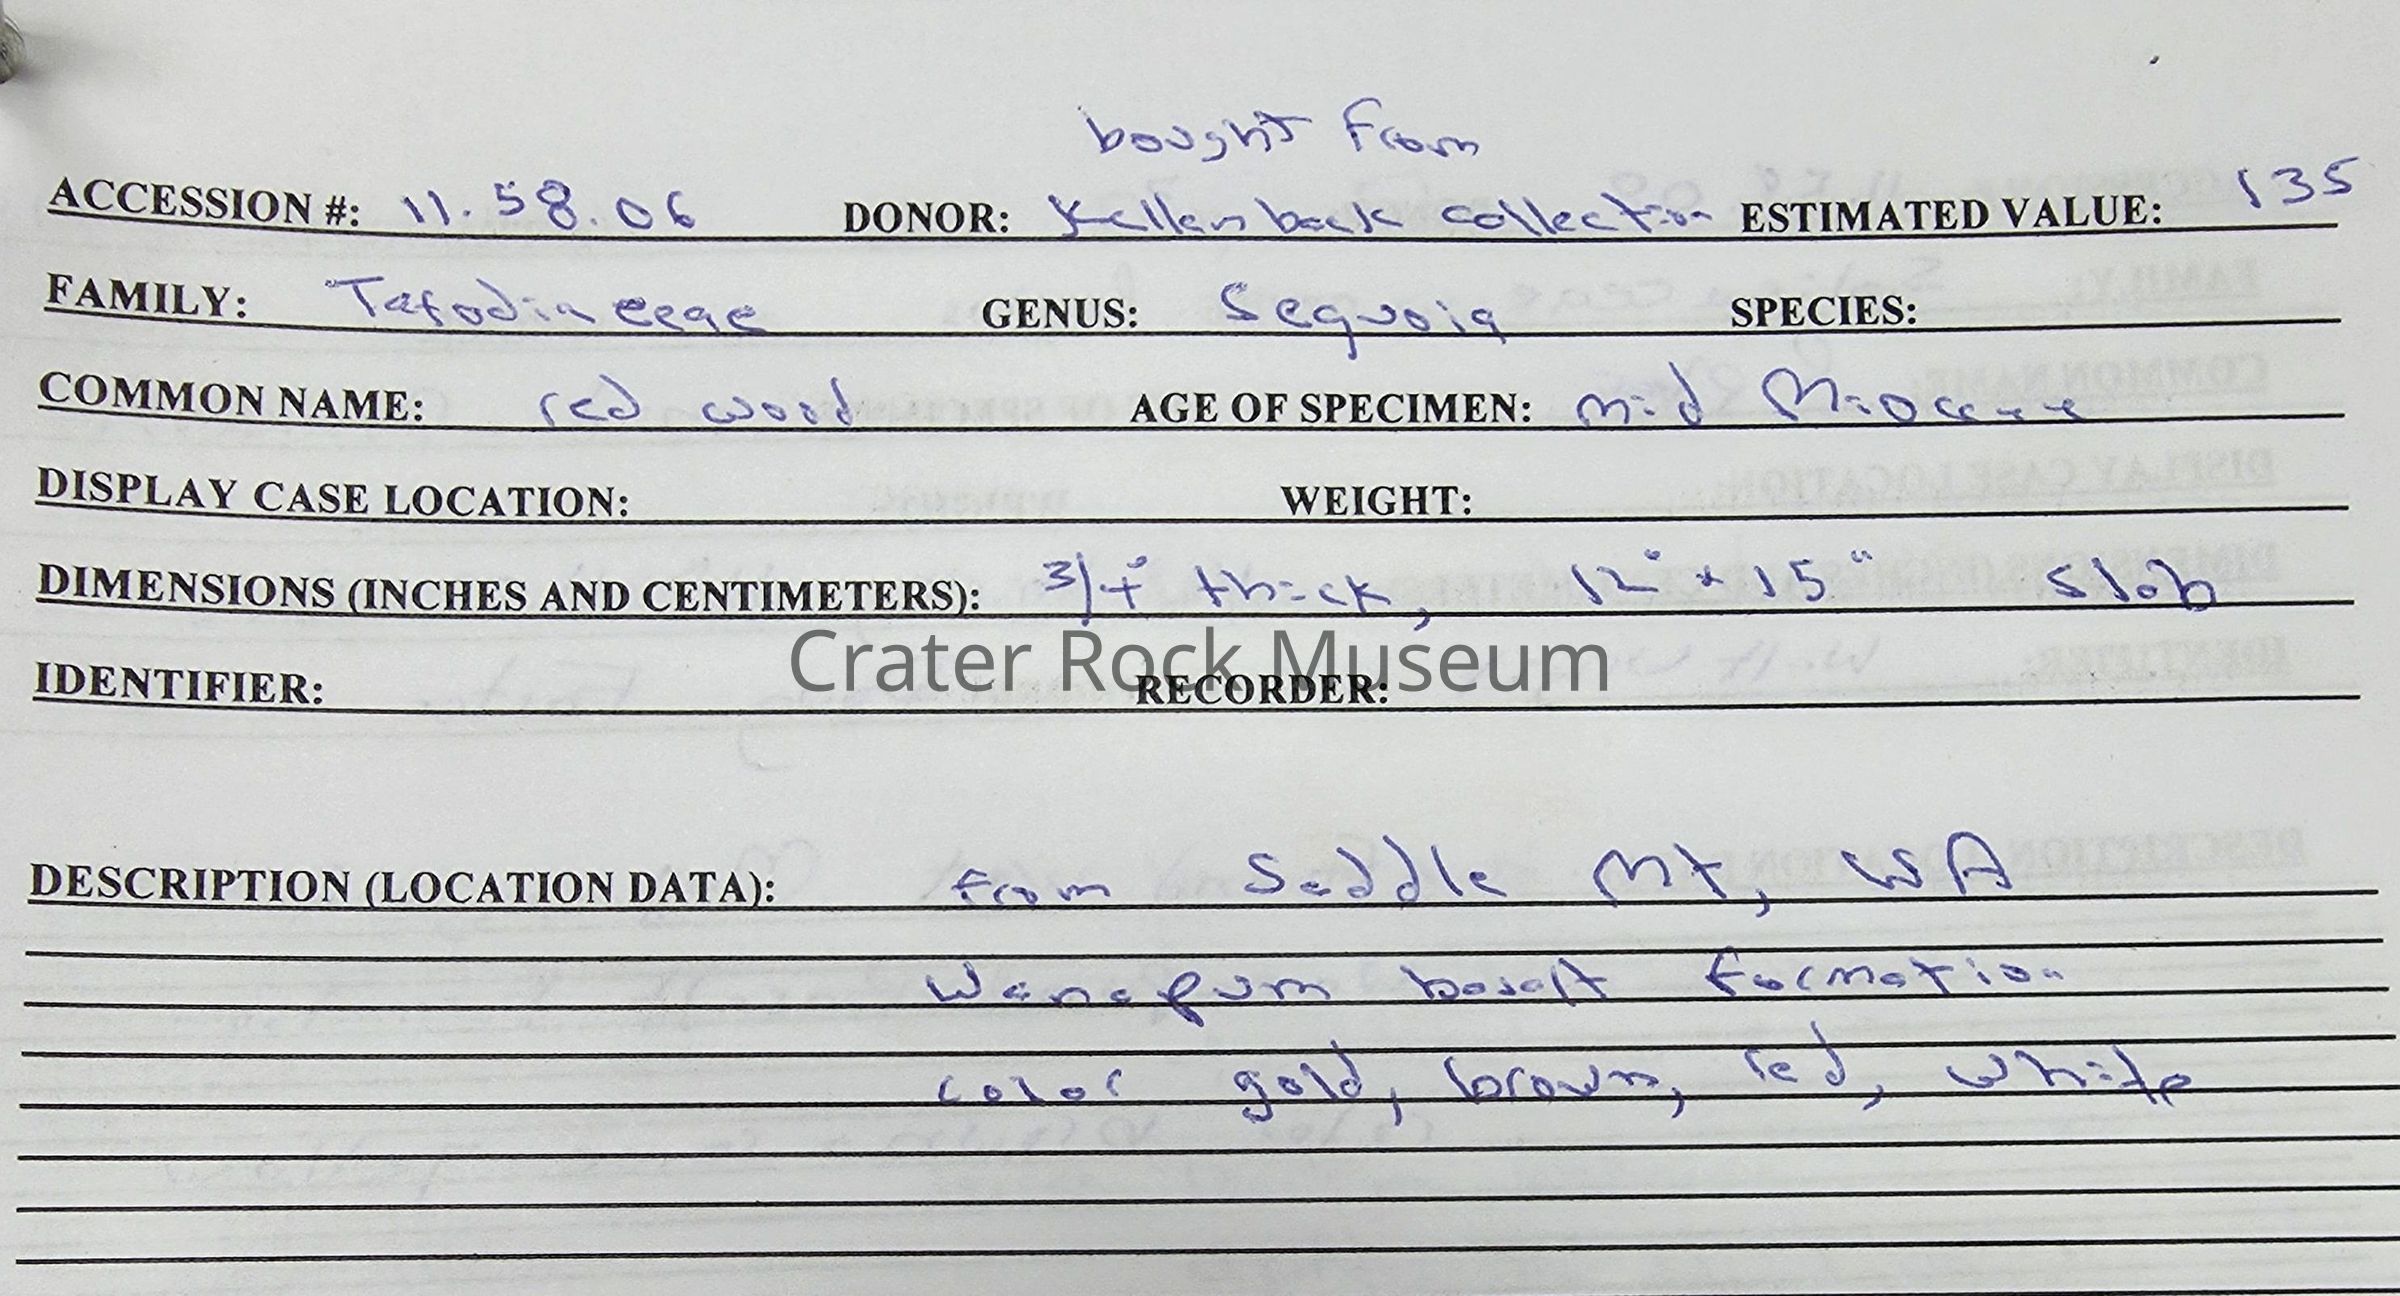 bought from
ACCESSION #: 11.58.06 DONOR: Kellenback collection ESTIMATED VALUE: 135
FAMILY: Tafodineeae GENUS: Sequoia SPECIES:
COMMON NAME: red wood AGE OF SPECIMEN: mid Miocene
DISPLAY CASE LOCATION: WEIGHT:
DIMENSIONS (INCHES AND CENTIMETERS): 3/4" thick, 12" x 15" slab
Crater Rock Museum
IDENTIFIER: RECORDER:
DESCRIPTION (LOCATION DATA): from Saddle Mt, WA
Wanapum basalt formation
color gold, brown, red, white